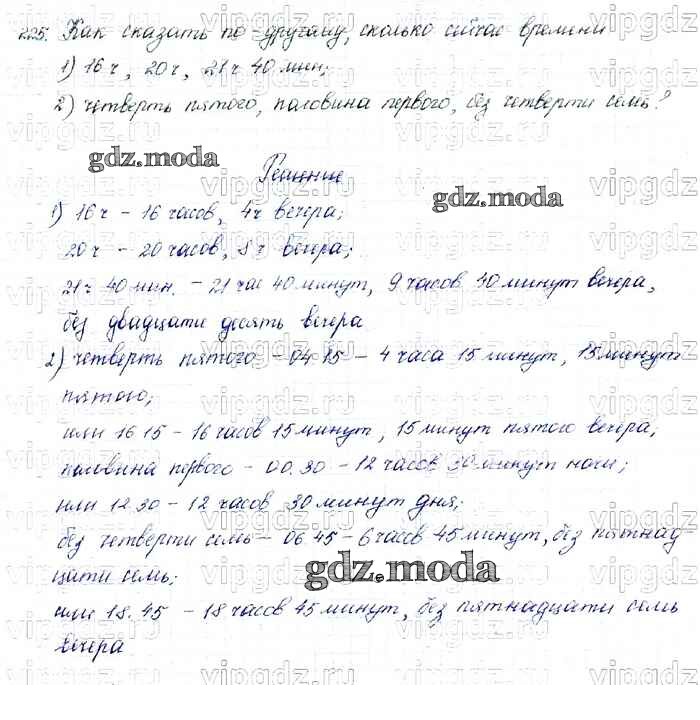 225. Как сказать по-другому, сколько сейчас времени
1) 16 ч, 20 ч, 21 ч 40 мин;
2) четверть пятого, половина первого, без четверти семь?
gdz.moda
Решение
gdz.moda
1) 16 ч – 16 часов, 4 ч вечера;
20 ч – 20 часов, 8 ч вечера;
21 ч 40 мин. – 21 час 40 минут, 9 часов 40 минут вечера,
без двадцати десять вечера
2) четверть пятого – 04 15 – 4 часа 15 минут, 15 минут
пятого;
или 16 15 – 16 часов 15 минут, 15 минут пятого вечера;
половина первого – 00.30 – 12 часов 30 минут ночи;
или 12.30 – 12 часов 30 минут дня;
без четверти семь – 06 45 – 6 часов 45 минут, без пятнад
цати семь;
gdz.moda
или 18.45 – 18 часов 45 минут, без пятнадцати семь
вечера